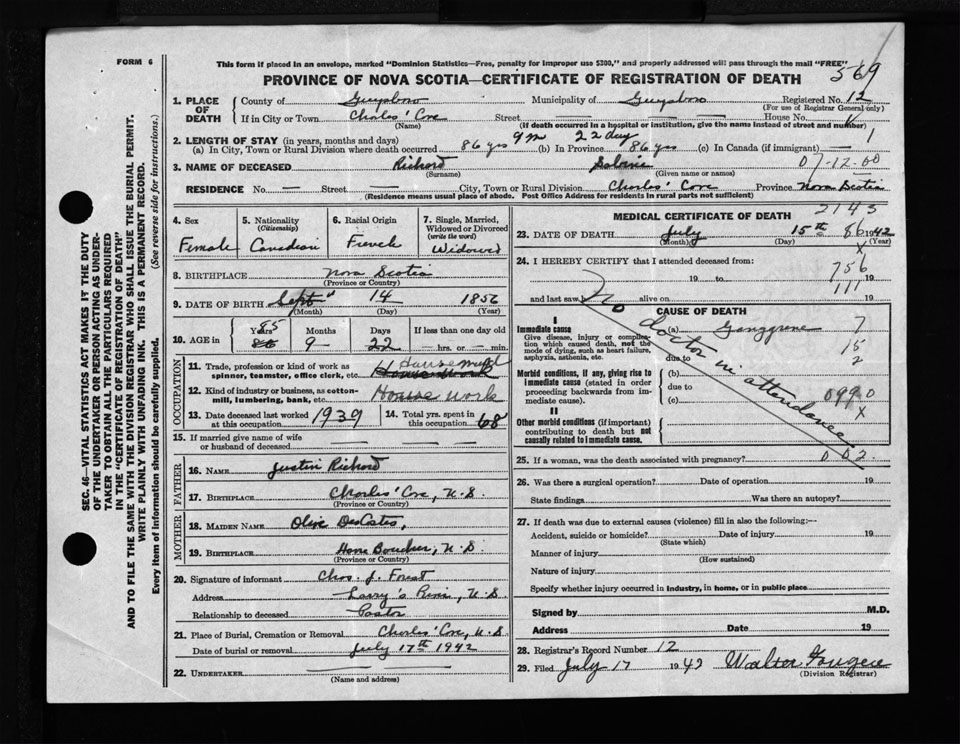 FORM 6
"This form if placed in an envelope, marked "Dominion Statistics—Free, penalty for improper use $300," and properly addressed will pass through the mail "FREE"
569
PROVINCE OF NOVA SCOTIA—CERTIFICATE OF REGISTRATION OF DEATH
SEC. 46—VITAL STATISTICS ACT MAKES IT THE DUTY
OF THE UNDERTAKER OR PERSON ACTING AS UNDER-
TAKER TO OBTAIN ALL THE PARTICULARS REQUIRED
IN THE "CERTIFICATE OF REGISTRATION OF DEATH"
AND TO FILE THE SAME WITH THE DIVISION REGISTRAR WHO SHALL ISSUE THE BURIAL PERMIT.
WRITE PLAINLY WITH UNFADING INK. THIS IS A PERMANENT RECORD.
Every item of information should be carefully supplied. (See reverse side for instructions.)
1. PLACE OF DEATH
County of Guysboro Municipality of Guysboro Registered No. 12
(For use of Registrar General only)
If in City or Town Charles' Cove Street — — — House No.
(Name) (If death occurred in a hospital or institution, give the name instead of street and number)
2. LENGTH OF STAY (in years, months and days) 9m 22 day 1
(a) In City, Town or Rural Division where death occurred 86 yrs (b) In Province 86 yrs (c) In Canada (if immigrant) —
3. NAME OF DECEASED Richard Sabine 07-12.00
(Surname) (Given name or names)
RESIDENCE No. — Street — City, Town or Rural Division Charles' Cove Province Nova Scotia
(Residence means usual place of abode. Post Office Address for residents in rural parts not sufficient)
4. Sex
Female
5. Nationality
(Citizenship)
Canadian
6. Racial Origin
French
7. Single, Married,
Widowed or Divorced
(write the word)
Widowed
8. BIRTHPLACE Nova Scotia
(Province or Country)
9. DATE OF BIRTH Sept 14 1856
(Month) (Day) (Year)
10. AGE in
Years Months Days If less than one day old
85
86 9 22 — hrs. or — min.
OCCUPATION
11. Trade, profession or kind of work as
spinner, teamster, office clerk, etc. Housework
Housemaid
12. Kind of industry or business, as cotton-
mill, lumbering, bank, etc. House work
13. Date deceased last worked
at this occupation 1939
14. Total yrs. spent in
this occupation 68
15. If married give name of wife
or husband of deceased — —
FATHER
16. NAME Justin Richard
17. BIRTHPLACE Charles' Cove, N.S.
(Province or Country)
MOTHER
18. MAIDEN NAME Olive DesCostes,
19. BIRTHPLACE Havre Boucher, N.S.
(Province or Country)
20. Signature of informant Chas. J. Forest
Address Larry's River, N.S.
Relationship to deceased Pastor
21. Place of Burial, Cremation or Removal Charles' Cove, N.S.
Date of burial or removal July 17th 1942
22. UNDERTAKER — —
(Name and address)
MEDICAL CERTIFICATE OF DEATH
2143
23. DATE OF DEATH July 15th 86 1942
(Month) (Day) (Year)
x
24. I HEREBY CERTIFY that I attended deceased from:
756
19 to 19
111
and last saw alive on 19
No doctor in attendance
CAUSE OF DEATH
I
Immediate cause
Give disease, injury or complica-
tion which caused death, not the
mode of dying, such as heart failure,
asphyxia, asthenia, etc.
(a) Ganggrene 7
15
due to 2
Morbid conditions, if any, giving rise to
immediate cause (stated in order
proceeding backwards from im-
mediate cause).
(b)
due to
(c) 0990
x
II
Other morbid conditions (if important)
contributing to death but not
causally related to immediate cause.
25. If a woman, was the death associated with pregnancy? 002
26. Was there a surgical operation? Date of operation 19
State findings Was there an autopsy?
27. If death was due to external causes (violence) fill in also the following:—
Accident, suicide or homicide? Date of injury 19
(State which)
Manner of injury
(How sustained)
Nature of injury
Specify whether injury occurred in industry, in home, or in public place
Signed by M.D.
Address Date 19
28. Registrar's Record Number 12
29. Filed July 17 1942 Walter Fougere
(Division Registrar)